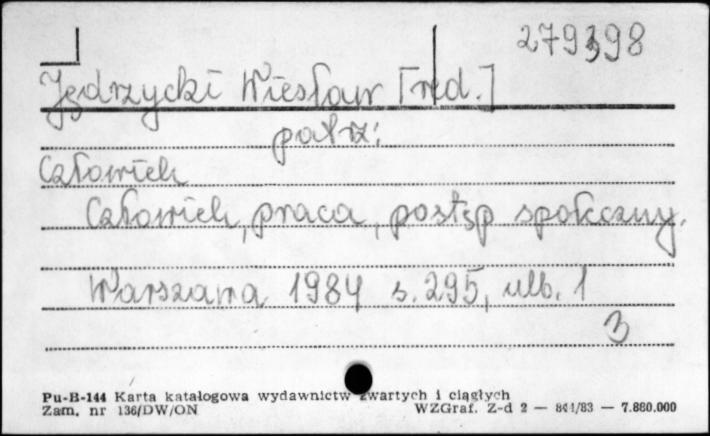 279398
Jędrzycki Wiesław [red.]
patrz:
Człowiek
Człowiek, praca, postęp społeczny.
Warszawa 1984 s. 295, ulb. 1
3
Pu-B-144 Karta katalogowa wydawnictw zwartych i ciągłych
Zam. nr 136/DW/ON WZGraf. Z-d 2 — /83 — 7.880.000